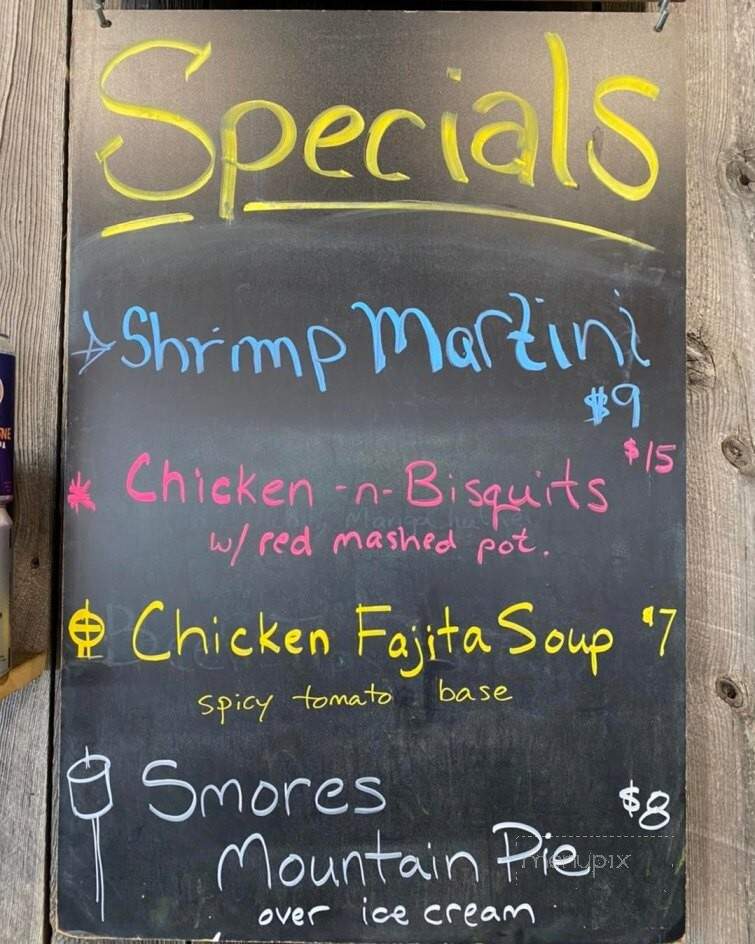 Specials
Shrimp Martini
$9
$15
Chicken -n- Bisquits
w/ red mashed pot.
Chicken Fajita Soup $7
spicy tomato base
Smores
$8
Mountain Pie
menupix
over ice cream